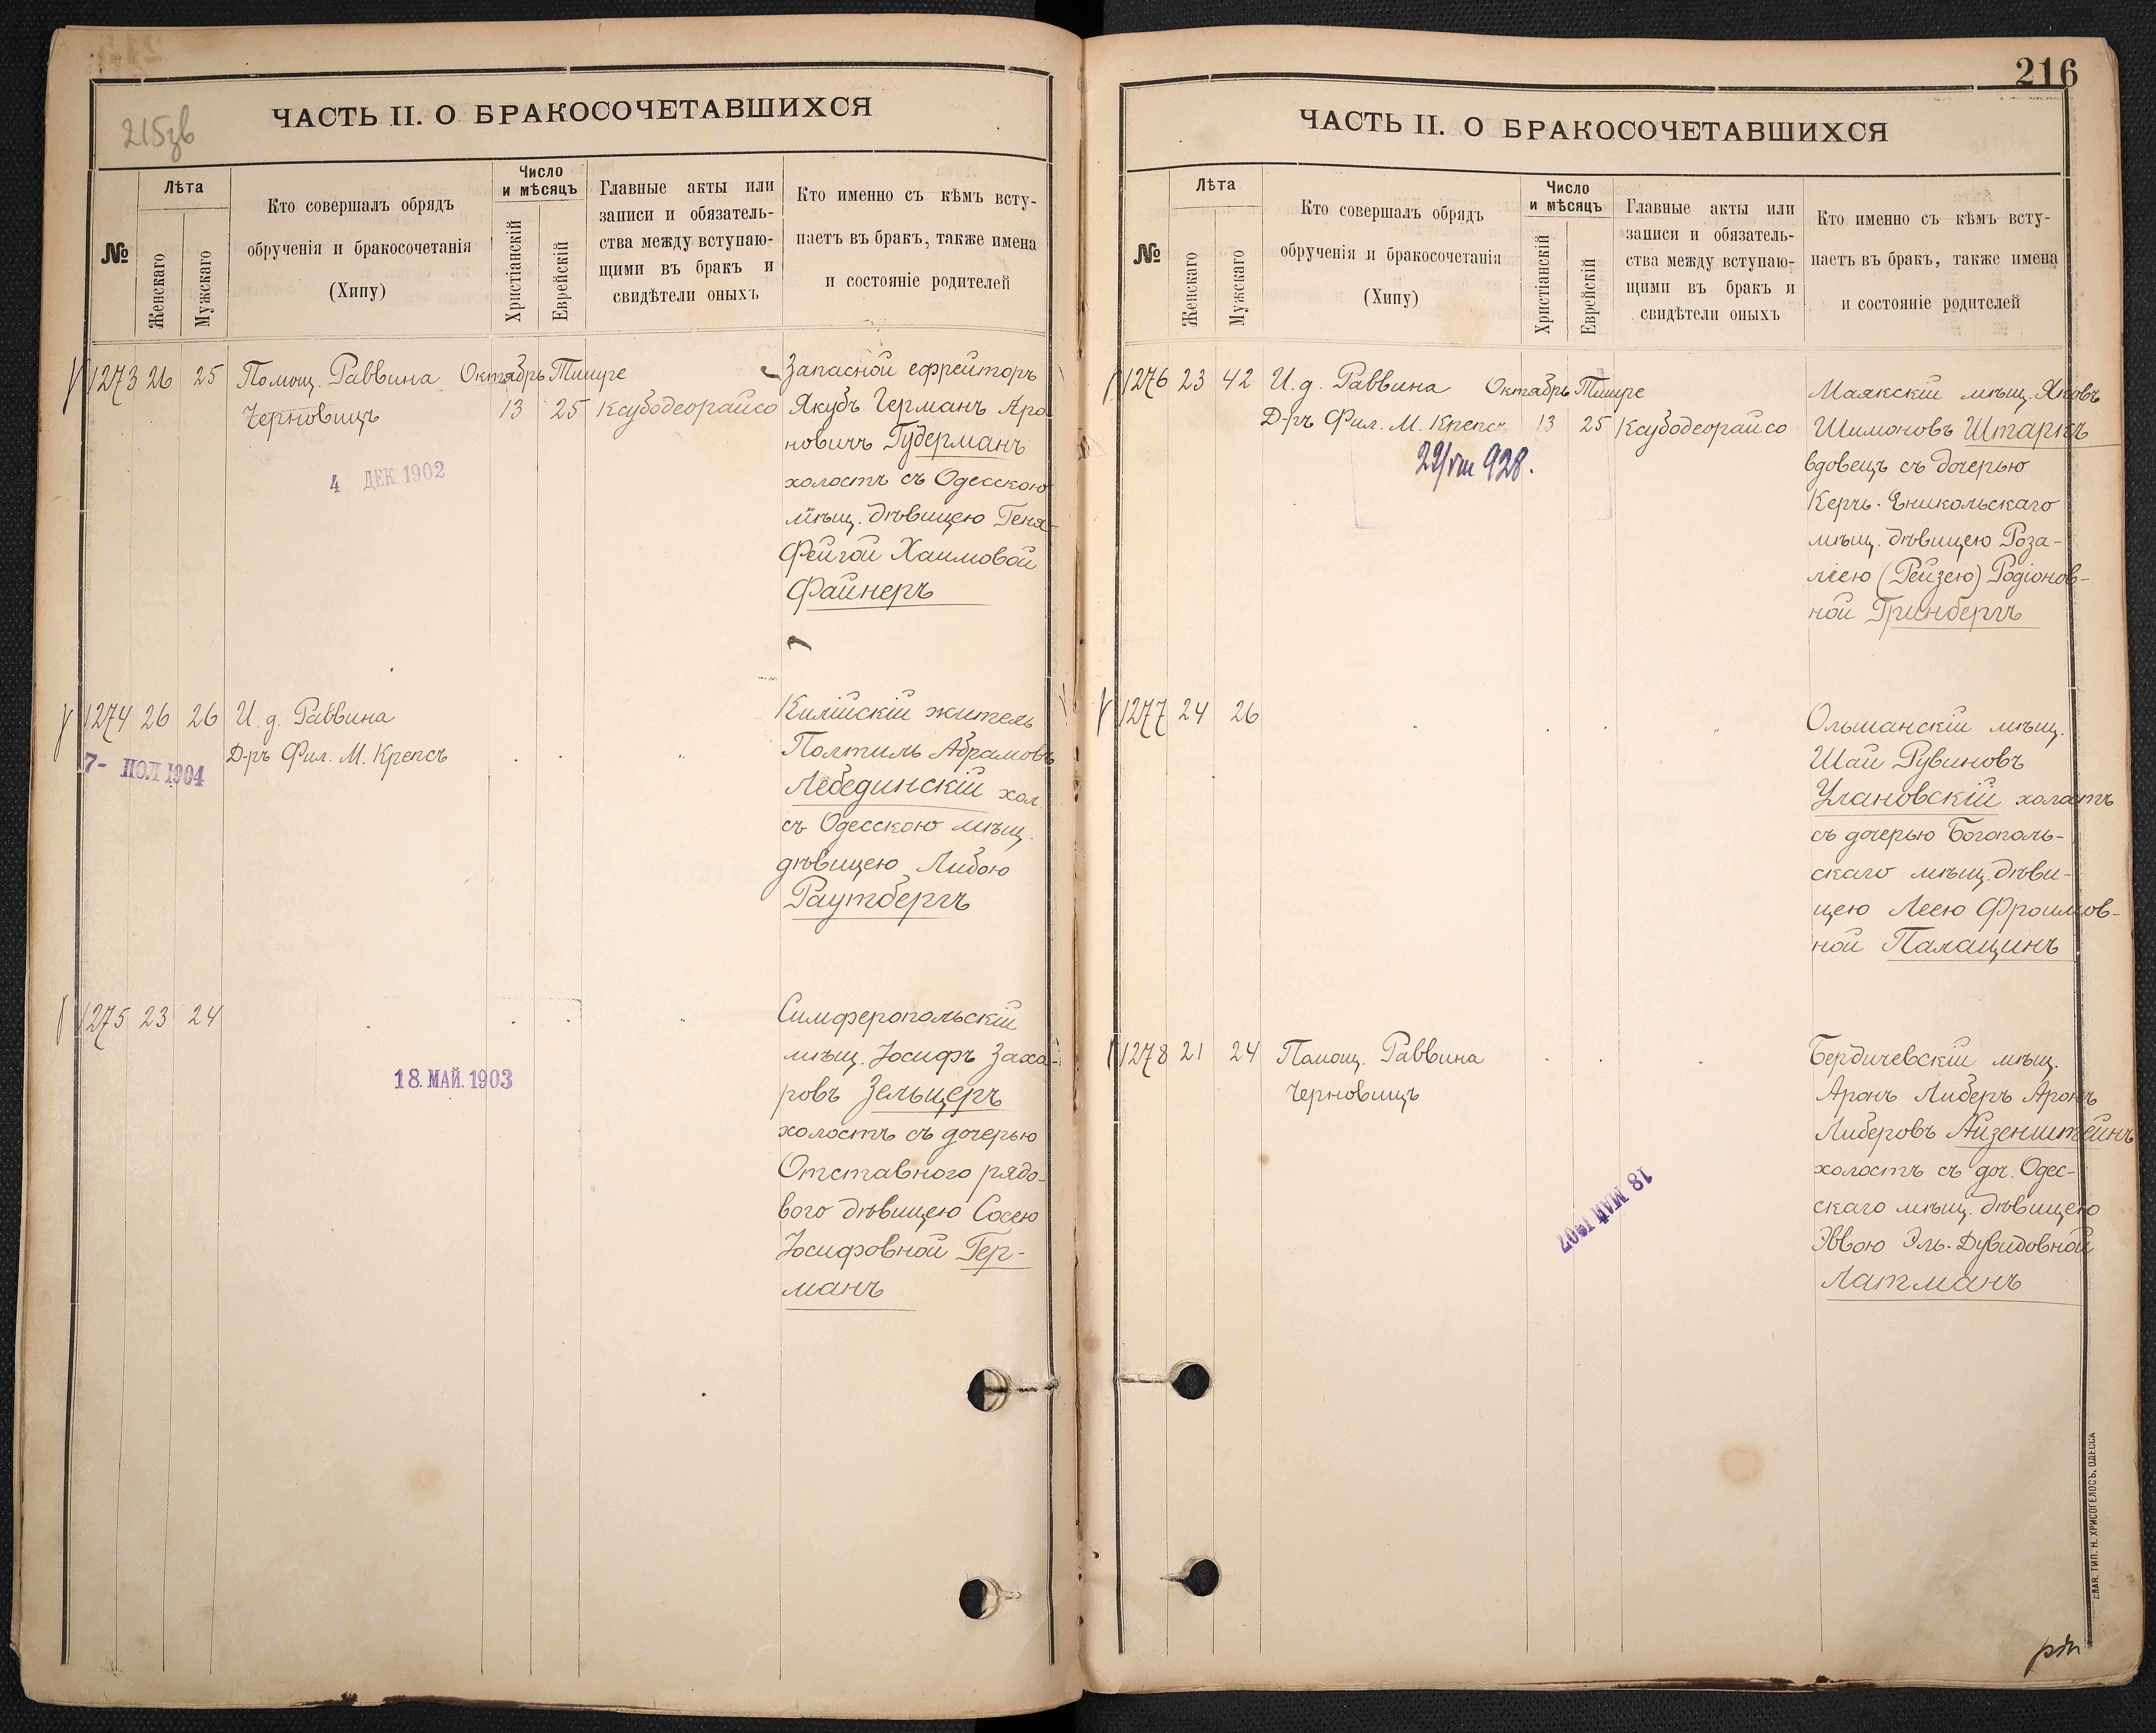 215зв
ЧАСТЬ II. О БРАКОСОЧЕТАВШИХСЯ
№
Лѣта
Женскаго
Мужскаго
Кто совершалъ обрядъ
обрученія и бракосочетанія
(Хипу)
Число
и мѣсяцъ
Христіанскій
Еврейскій
Главные акты или
записи и обязатель-
ства между вступаю-
щими въ бракъ и
свидѣтели оныхъ
Кто именно съ кѣмъ всту-
паетъ въ бракъ, также имена
и состояніе родителей
1273 26 25 Помощ. Раввина Октябрь Тишре
Черновицъ 13 25 Ксубодеорайсо
4 ДЕК. 1902
Запасной ефрейторъ
Якубъ Германъ Аро
новичъ Гудерманъ
холостъ съ Одесскою
мѣщ. дѣвицею Геня-
Фейгой Хаимовой
Файнеръ
1274 26 26 И. д. Раввина
Д-ръ Фил. М. Крепсъ
7- ІЮЛ 1904
Килійскій житель
Полтиль Абрамовъ
Лебединскій хол.
съ Одесскою мѣщ.
дѣвицею Либою
Раутбергъ
1275 23 24
18. МАЙ. 1903
Симферопольскій
мѣщ. Іосифъ Заха-
ровъ Зельцеръ
холостъ съ дочерью
Отставного рядо-
вого дѣвицею Сосею
Іосифовной Гер-
манъ
216
ЧАСТЬ II. О БРАКОСОЧЕТАВШИХСЯ
№
Лѣта
Женскаго
Мужскаго
Кто совершалъ обрядъ
обрученія и бракосочетанія
(Хипу)
Число
и мѣсяцъ
Христіанскій
Еврейскій
Главные акты или
записи и обязатель-
ства между вступаю-
щими въ бракъ и
свидѣтели оныхъ
Кто именно съ кѣмъ всту-
паетъ въ бракъ, также имена
и состояніе родителей
1276 23 42 И. д. Раввина Октябрь Тишре
Д-ръ Фил. М. Крепсъ 13 25 Ксубодеорайсо
29/VIII 928.
Маякскій мѣщ. Яковъ
Шимоновъ Штаркъ
вдовецъ съ дочерью
Керчь-Еникольскаго
мѣщ. дѣвицею Роза-
ліею (Рейзею) Родіонов-
ной Гринбергъ
1277 24 26
Ольшанскій мѣщ.
Шая Рувиновъ
Улановскій холостъ
съ дочерью Богополь-
скаго мѣщ. дѣви-
цею Леею Фроимов-
ной Палащинъ
1278 21 24 Помощ. Раввина
Черновицъ
18 МАЙ 1907
Бердичевскій мѣщ.
Аронъ Либеръ Аронъ
Либеровъ Айзенштейнъ
холостъ съ доч. Одес-
скаго мѣщ. дѣвицею
Эввою Эль-Дувидовной
Латманъ
СЛАВ. ТИП. Н. ХРИСОГЕЛОСЪ, ОДЕССА